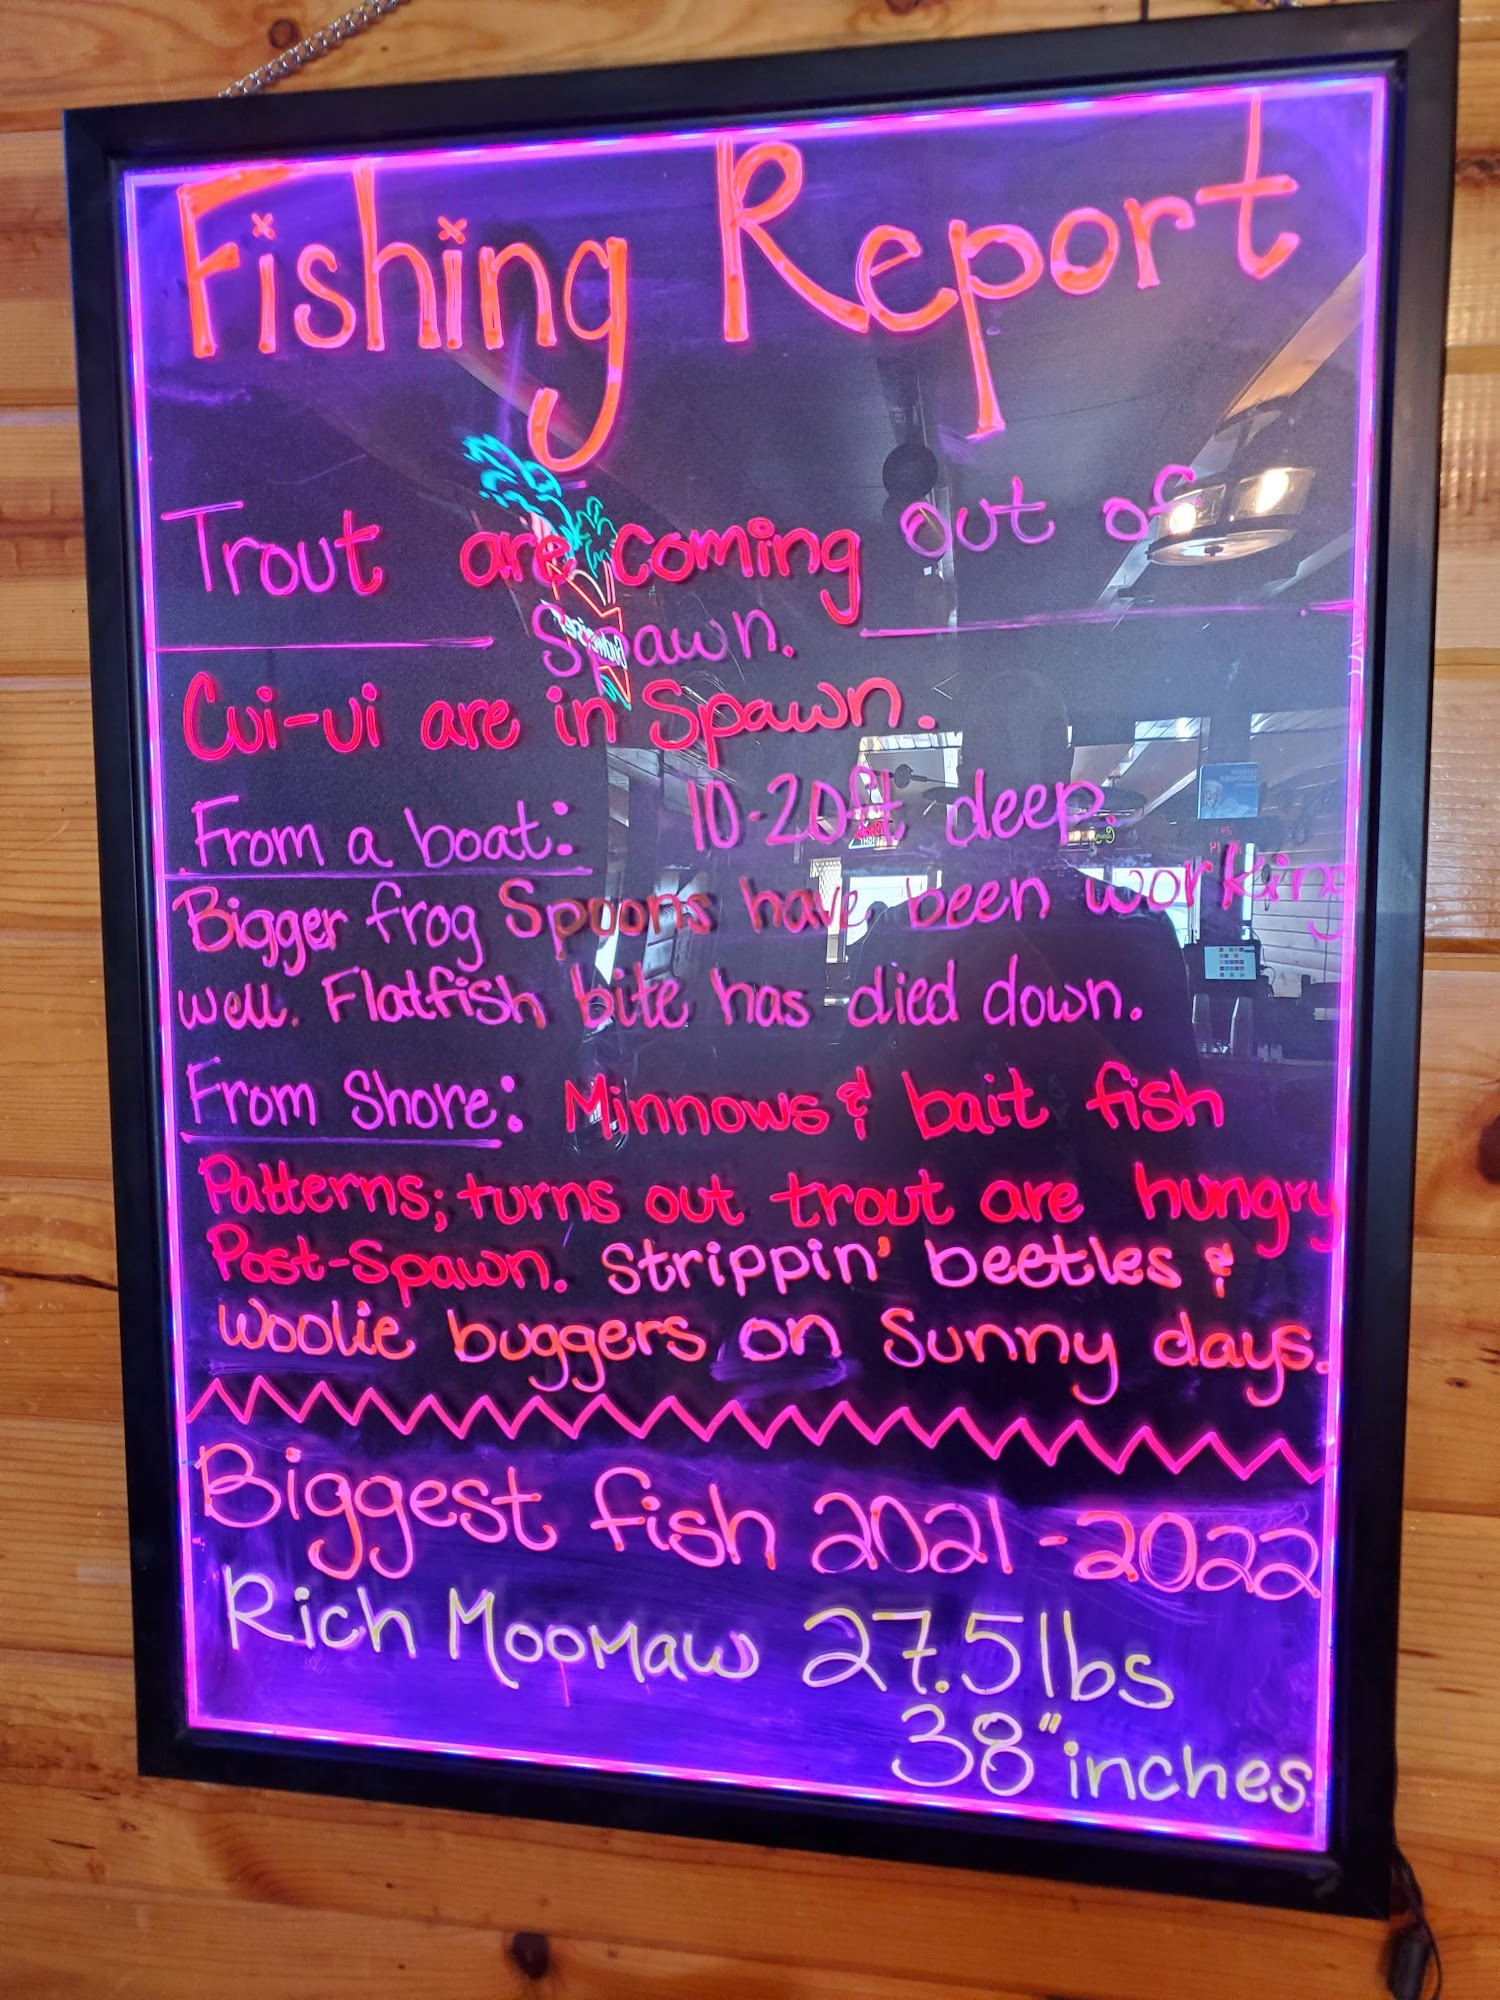 Fishing Report
Trout are coming out of
Spawn.
Cui-ui are in Spawn.
From a boat: 10-20ft deep.
Bigger frog Spoons have been working
well. Flatfish bite has died down.
From Shore: Minnows & bait fish
Patterns; turns out trout are hungry
Post-Spawn. Strippin' beetles &
Woolie buggers on Sunny days.
Biggest fish 2021-2022
Rich Moomaw 27.5lbs
38" inches